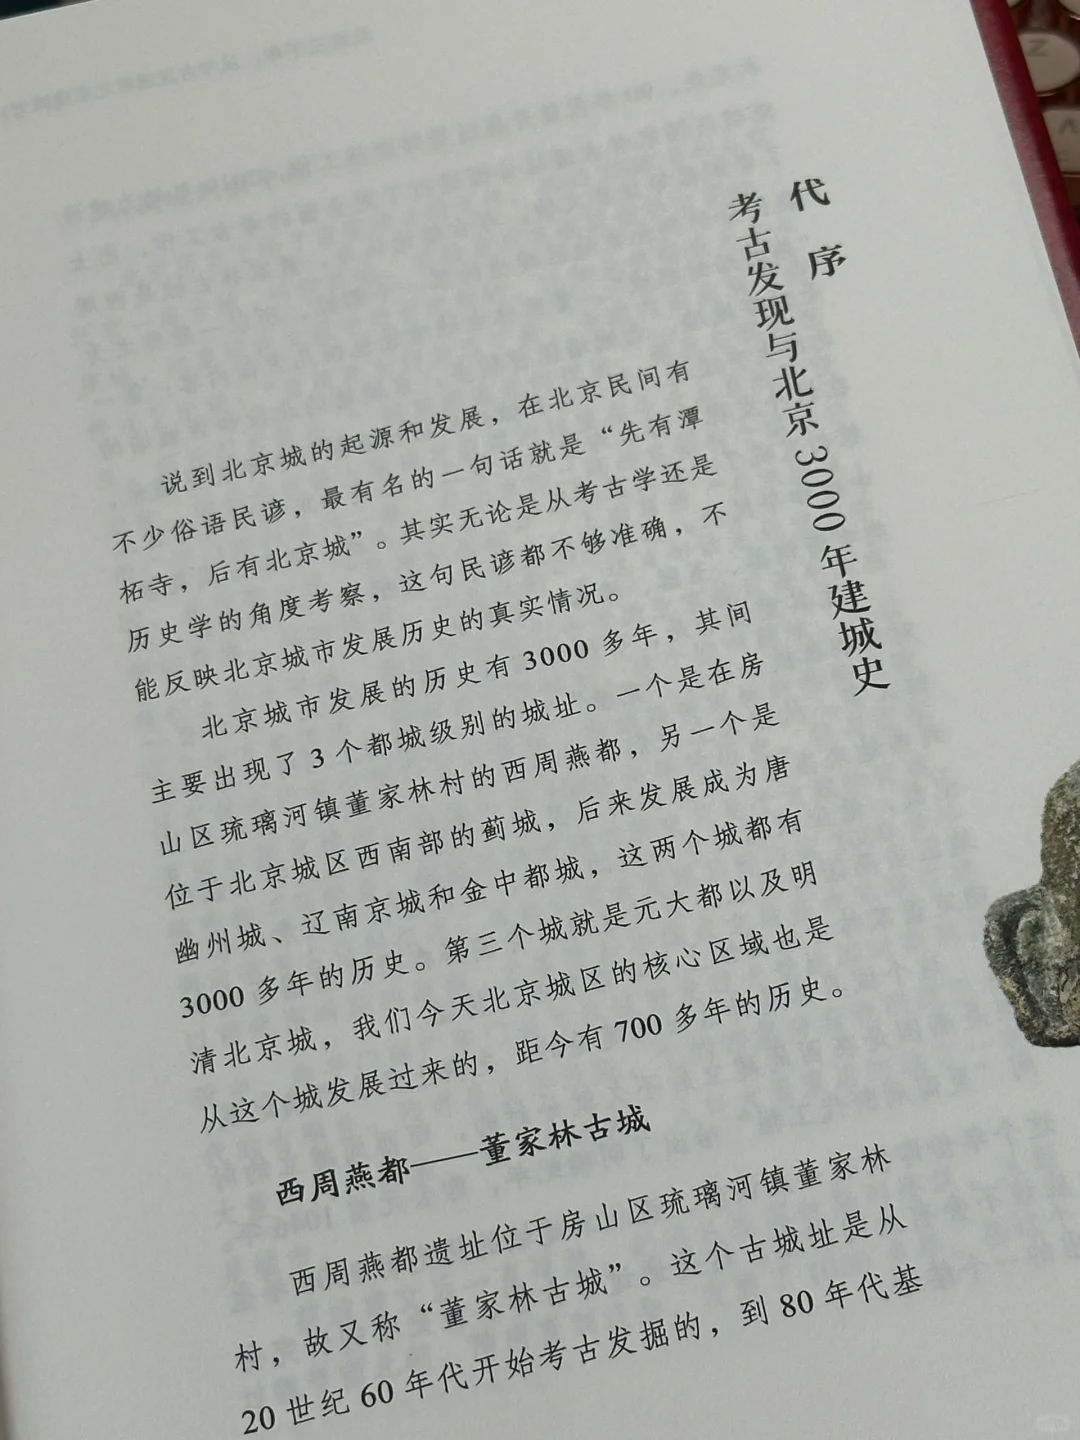 代序
考古发现与北京3000年建城史
说到北京城的起源和发展，在北京民间有
不少俗语民谚，最有名的一句话就是“先有潭
柘寺，后有北京城”。其实无论是从考古学还是
历史学的角度考察，这句民谚都不够准确，不
能反映北京城市发展历史的真实情况。
北京城市发展的历史有3000多年，其间
主要出现了3个都城级别的城址。一个是在房
山区琉璃河镇董家林村的西周燕都，另一个是
位于北京城区西南部的蓟城，后来发展成为唐
幽州城、辽南京城和金中都城，这两个城都有
3000多年的历史。第三个城就是元大都以及明
清北京城，我们今天北京城区的核心区域也是
从这个城发展过来的，距今有700多年的历史。
西周燕都——董家林古城
西周燕都遗址位于房山区琉璃河镇董家林
村，故又称“董家林古城”。这个古城址是从
20世纪60年代开始考古发掘的，到80年代基